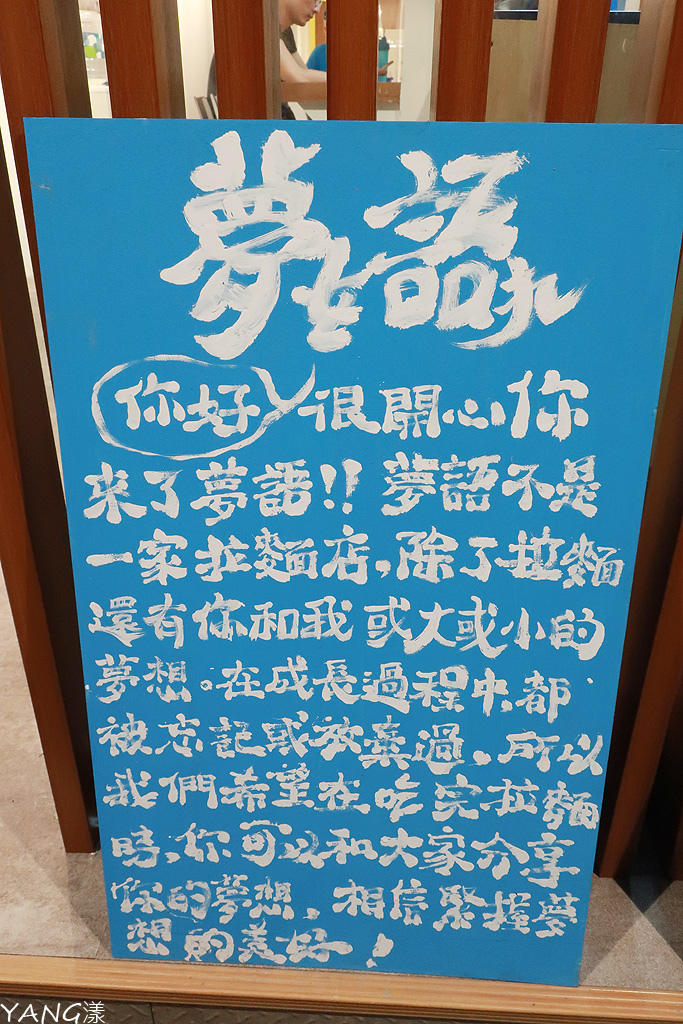 夢と語れ
你好 很開心你
來了夢語!! 夢語不是
一家拉麵店,除了拉麵
還有你和我或大或小的
夢想。在成長過程中,都
被忘記或放棄過。所以
我們希望在吃完拉麵
時,你可以和大家分享
你的夢想,相信緊握夢
想的美好!
YANG漾